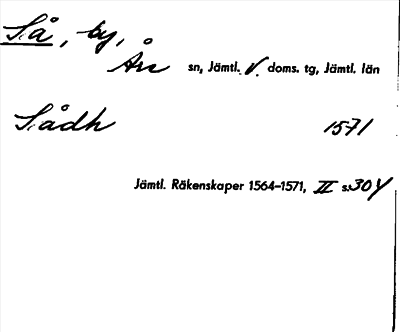 Så, by,
Åre sn, Jämtl. V. doms. tg, Jämtl. län
Sådh 1571
Jämtl. Räkenskaper 1564–1571, II s. 304